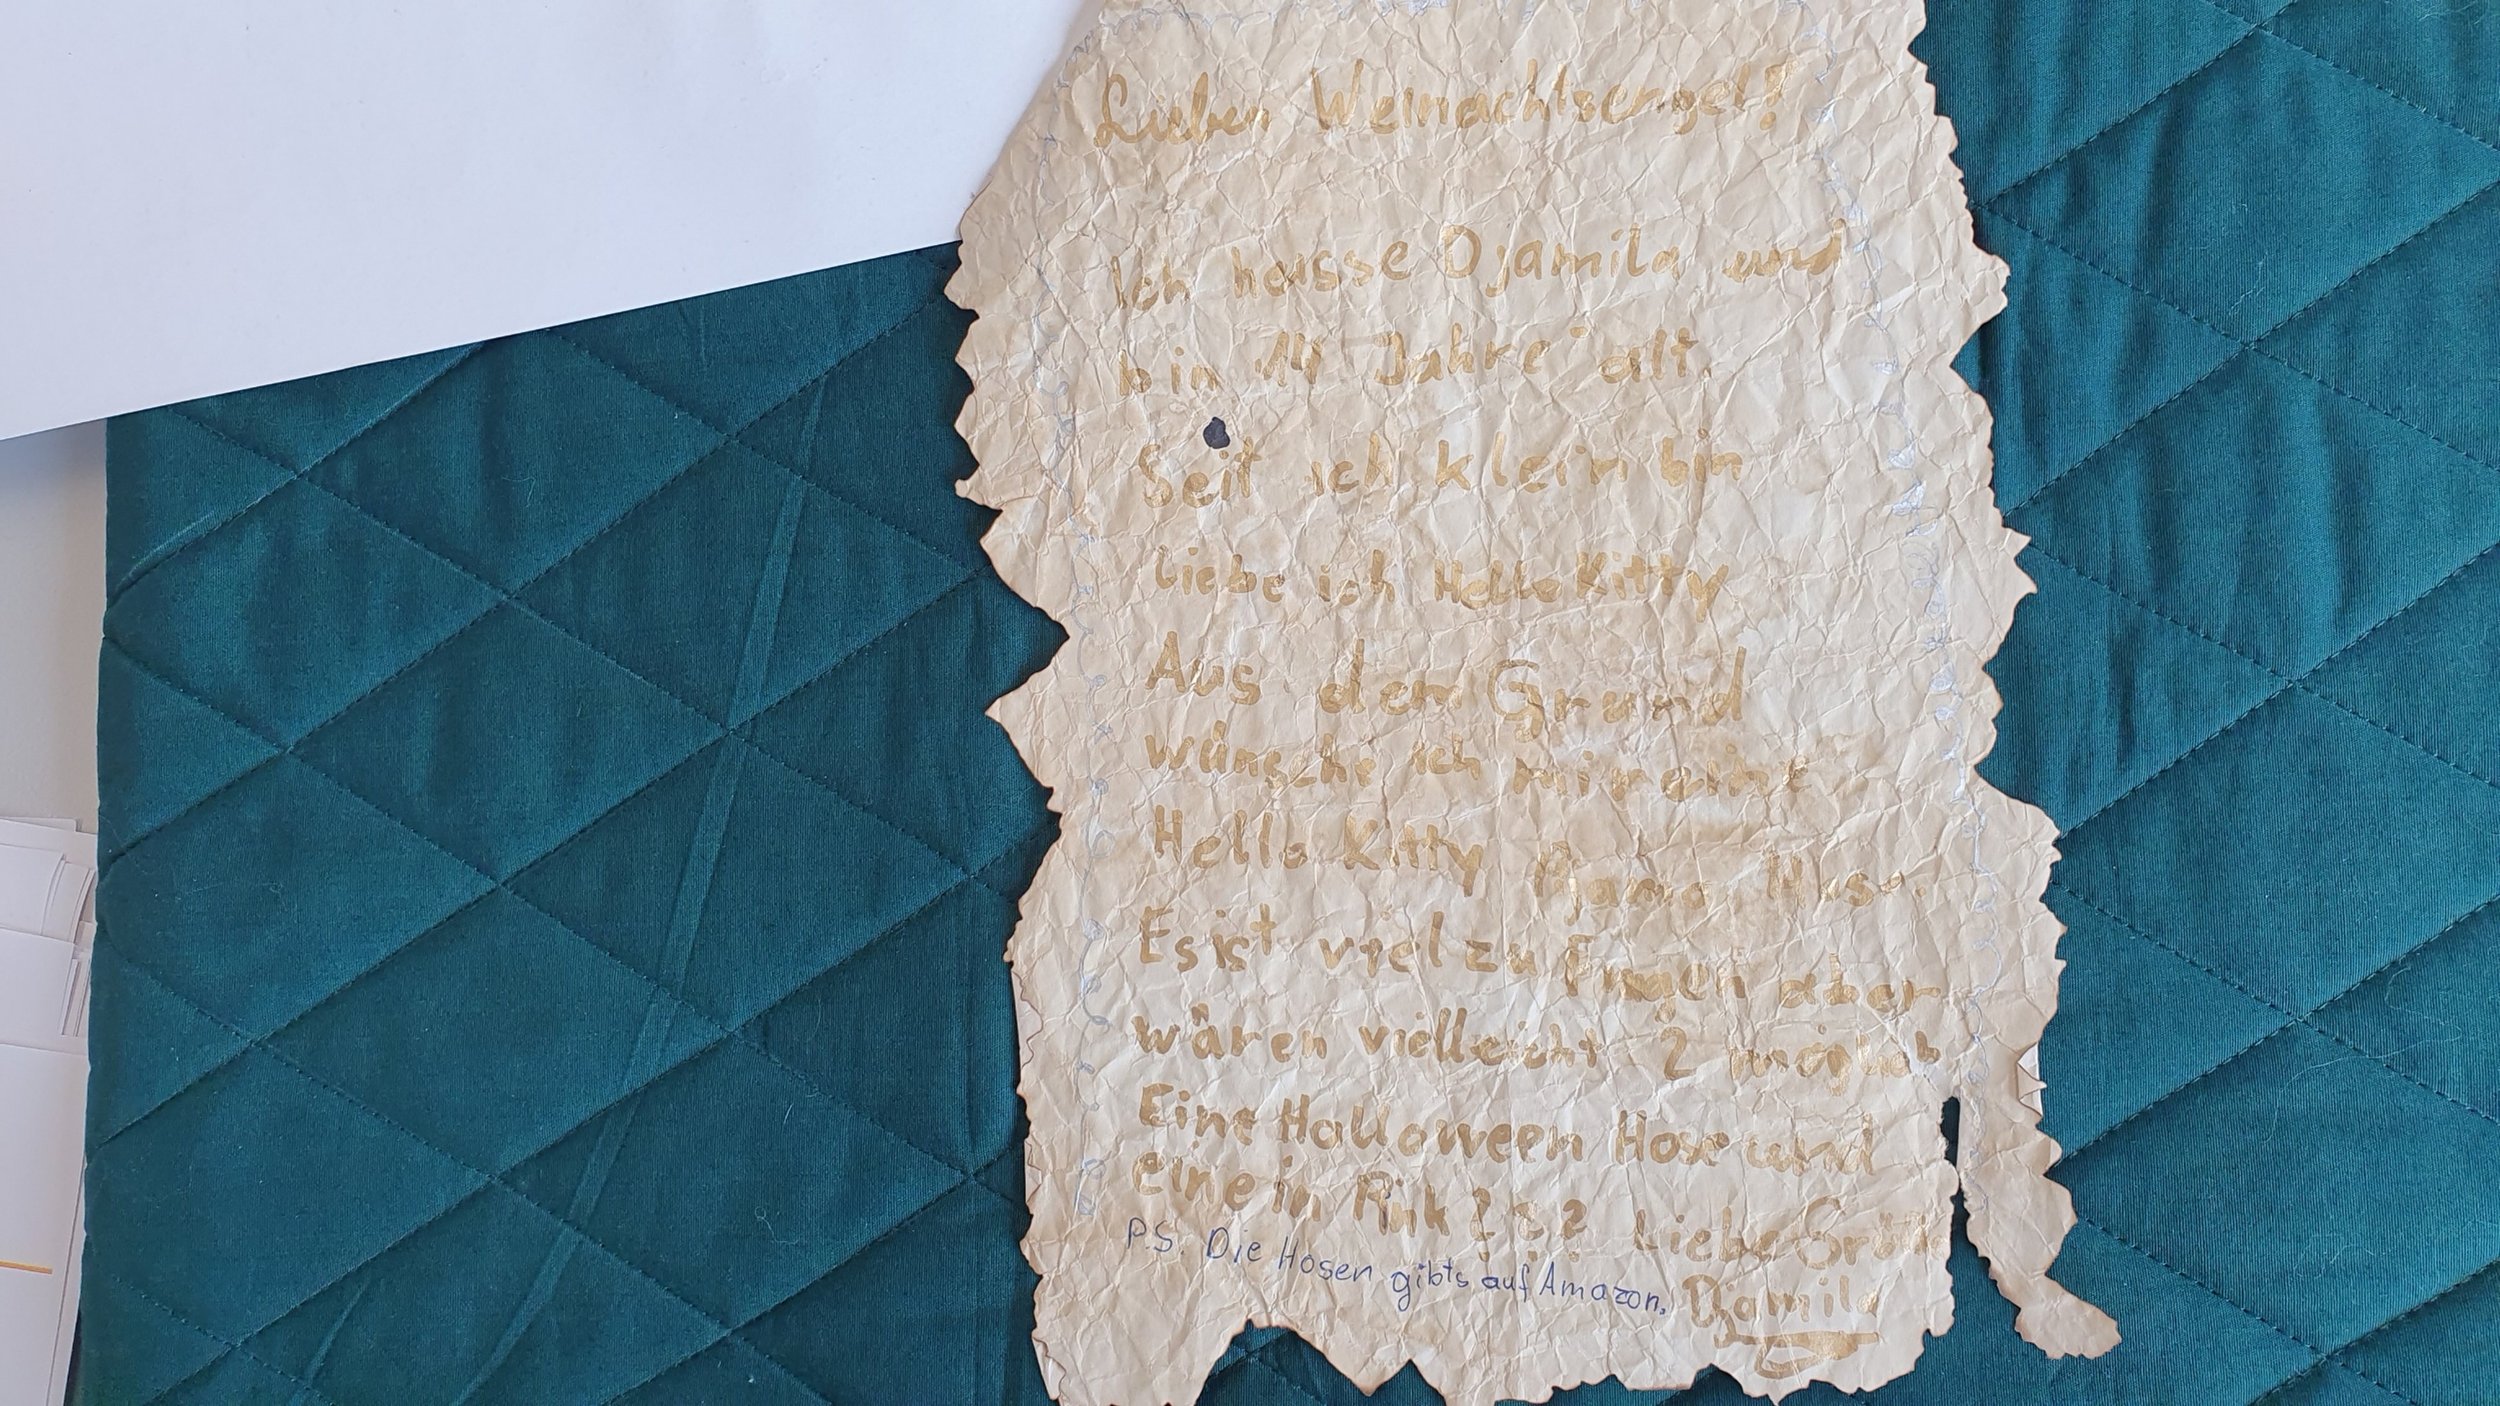 Lieber Weinachtsengel!
Ich heisse Djamila und
bin 14 Jahre alt.
Seit ich klein bin
liebe ich Hello Kitty
Aus dem Grund
wünsche ich mir eine
Hello Kitty
Es ist viel zu Fragen aber
wären vielleicht 2 möglich
Eine Halloween Hose und
eine in Pink??? Liebe Grüße
P.S. Die Hosen gibts auf Amazon. Djamila